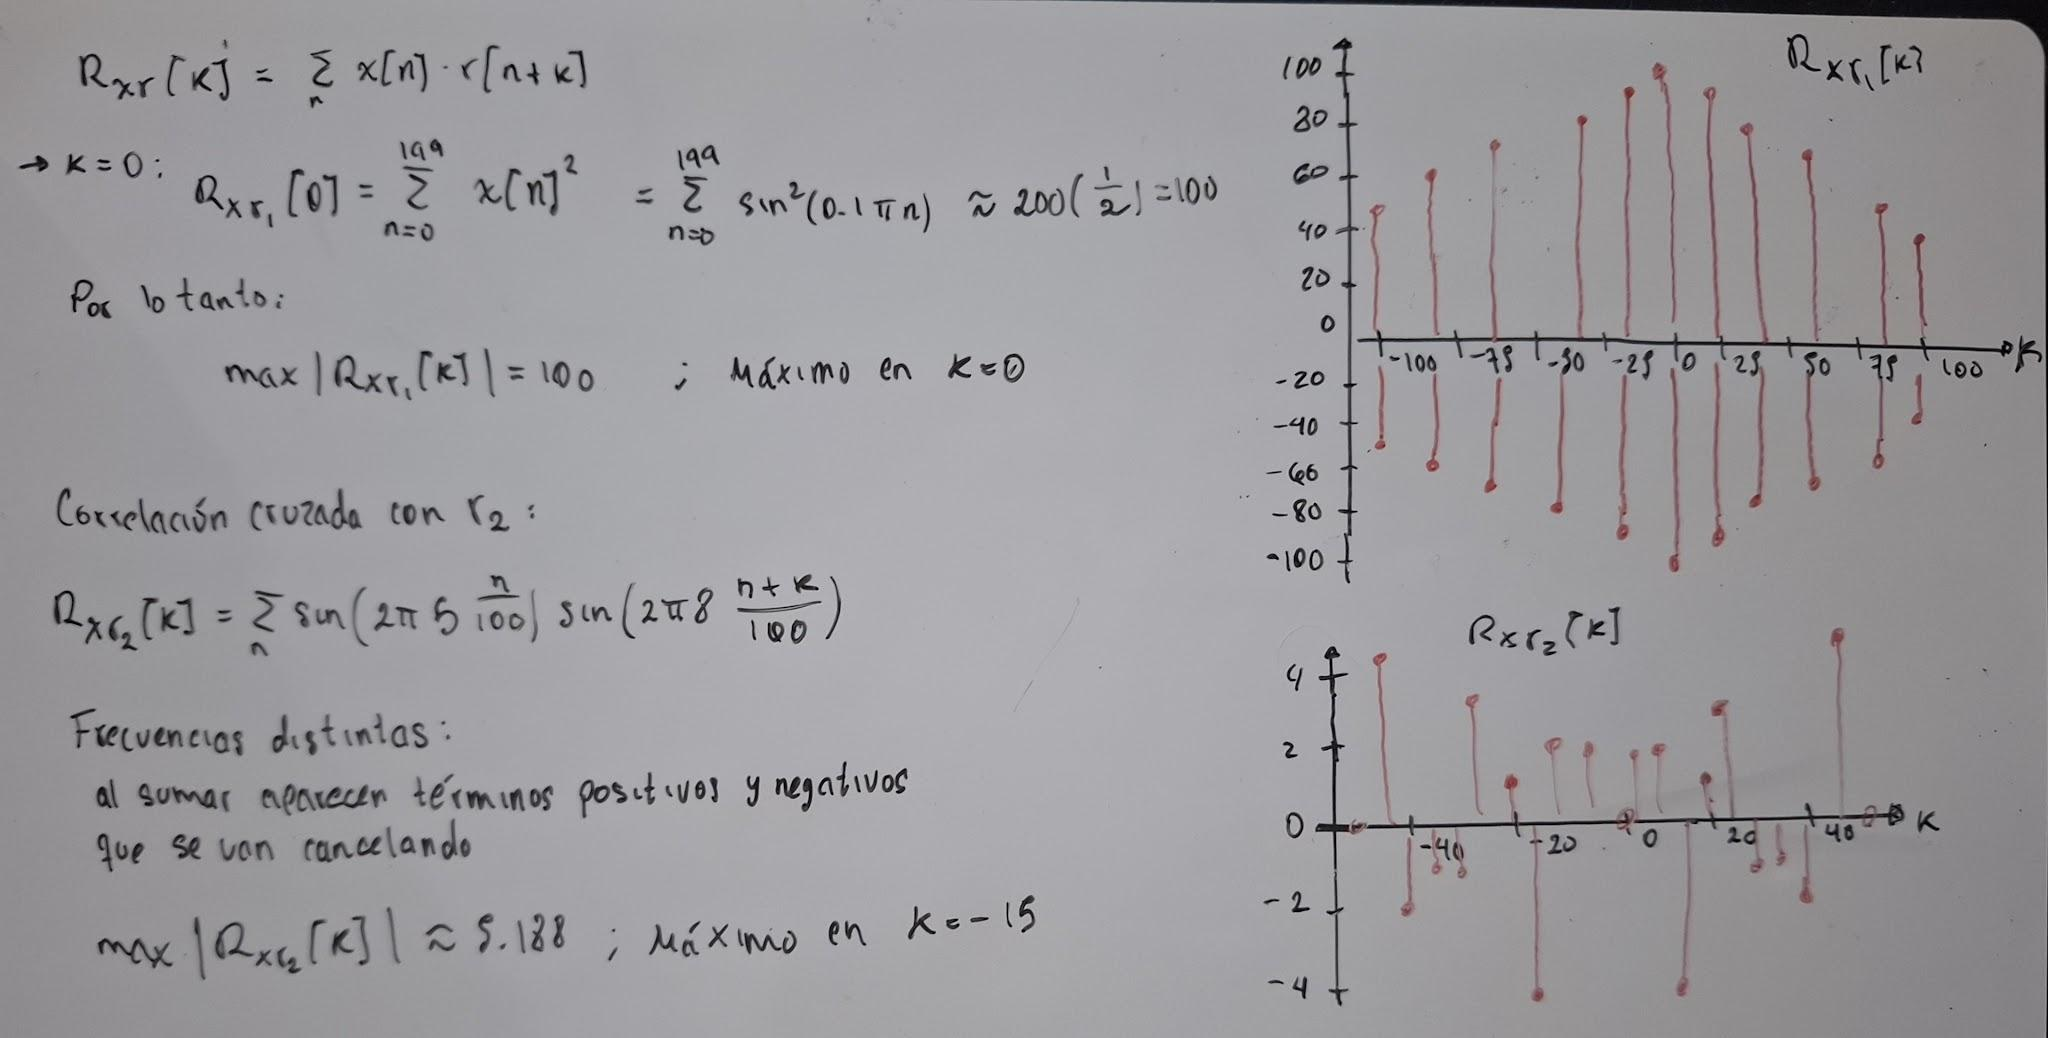 Rxr[k] = Σ x[n]·r[n+k]
n
→ k=0: Rxr₁[0] = Σ x[n]² = Σ sin²(0.1πn) ≈ 200(1/2)=100
199 n=0 199 n=0
Por lo tanto:
max |Rxr₁[k]| = 100 ; Máximo en k=0
Correlación cruzada con r₂:
Rxr₂[k] = Σ sin(2π5 n/100) sin(2π8 n+k/100)
n
Frecuencias distintas:
al sumar aparecen términos positivos y negativos
que se van cancelando
max |Rxr₂[k]| ≈ 5.188 ; Máximo en k=-15
Rxr₁[k]
100
80
60
40
20
0
-100 -75 -50 -25 0 25 50 75 100 k
-20
-40
-60
-80
-100
Rxr₂[k]
4
2
0
-40 -20 0 20 40 k
-2
-4